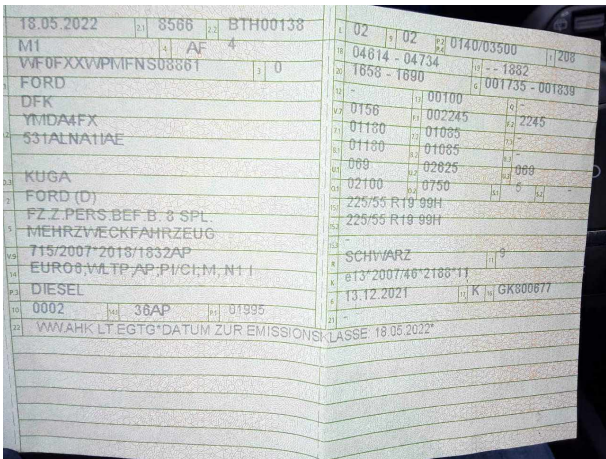 18.05.2022 2.1 8566 2.2 BTH00138
M1 4 AF 4
WF0FXXWPMFNS08861 3 0
FORD
DFK
YMDA4FX
531ALNA1IAE
KUGA
FORD (D)
FZ.Z.PERS.BEF.B. 8 SPL.
5 MEHRZWECKFAHRZEUG
V.9 715/2007*2018/1832AP
14 EURO6;WLTP;AP;PI/CI;M, N1 I
P.3 DIESEL
10 0002 14.1 36AP P.1 01995
22 WW.AHK LT.EGTG*DATUM ZUR EMISSIONSKLASSE: 18.05.2022*
L 02 9 02 P.2 P.4 0140/03500 T 208
18 04614 - 04734 19 - - 1882
20 1658 - 1690 G 001735 - 001839
12 - 13 00100 Q -
V.7 0156 F.1 002245 F.2 2245
7.1 01180 7.2 01085 7.3 -
8.1 01180 8.2 01085 8.3 -
U.1 069 U.2 02625 U.3 069
O.1 02100 O.2 0750 S.1 5 S.2 -
15.1 225/55 R19 99H
15.2 225/55 R19 99H
15.3 -
R SCHWARZ 11 9
K e13*2007/46*2188*11
6 13.12.2021 17 K 16 GK800677
21 -